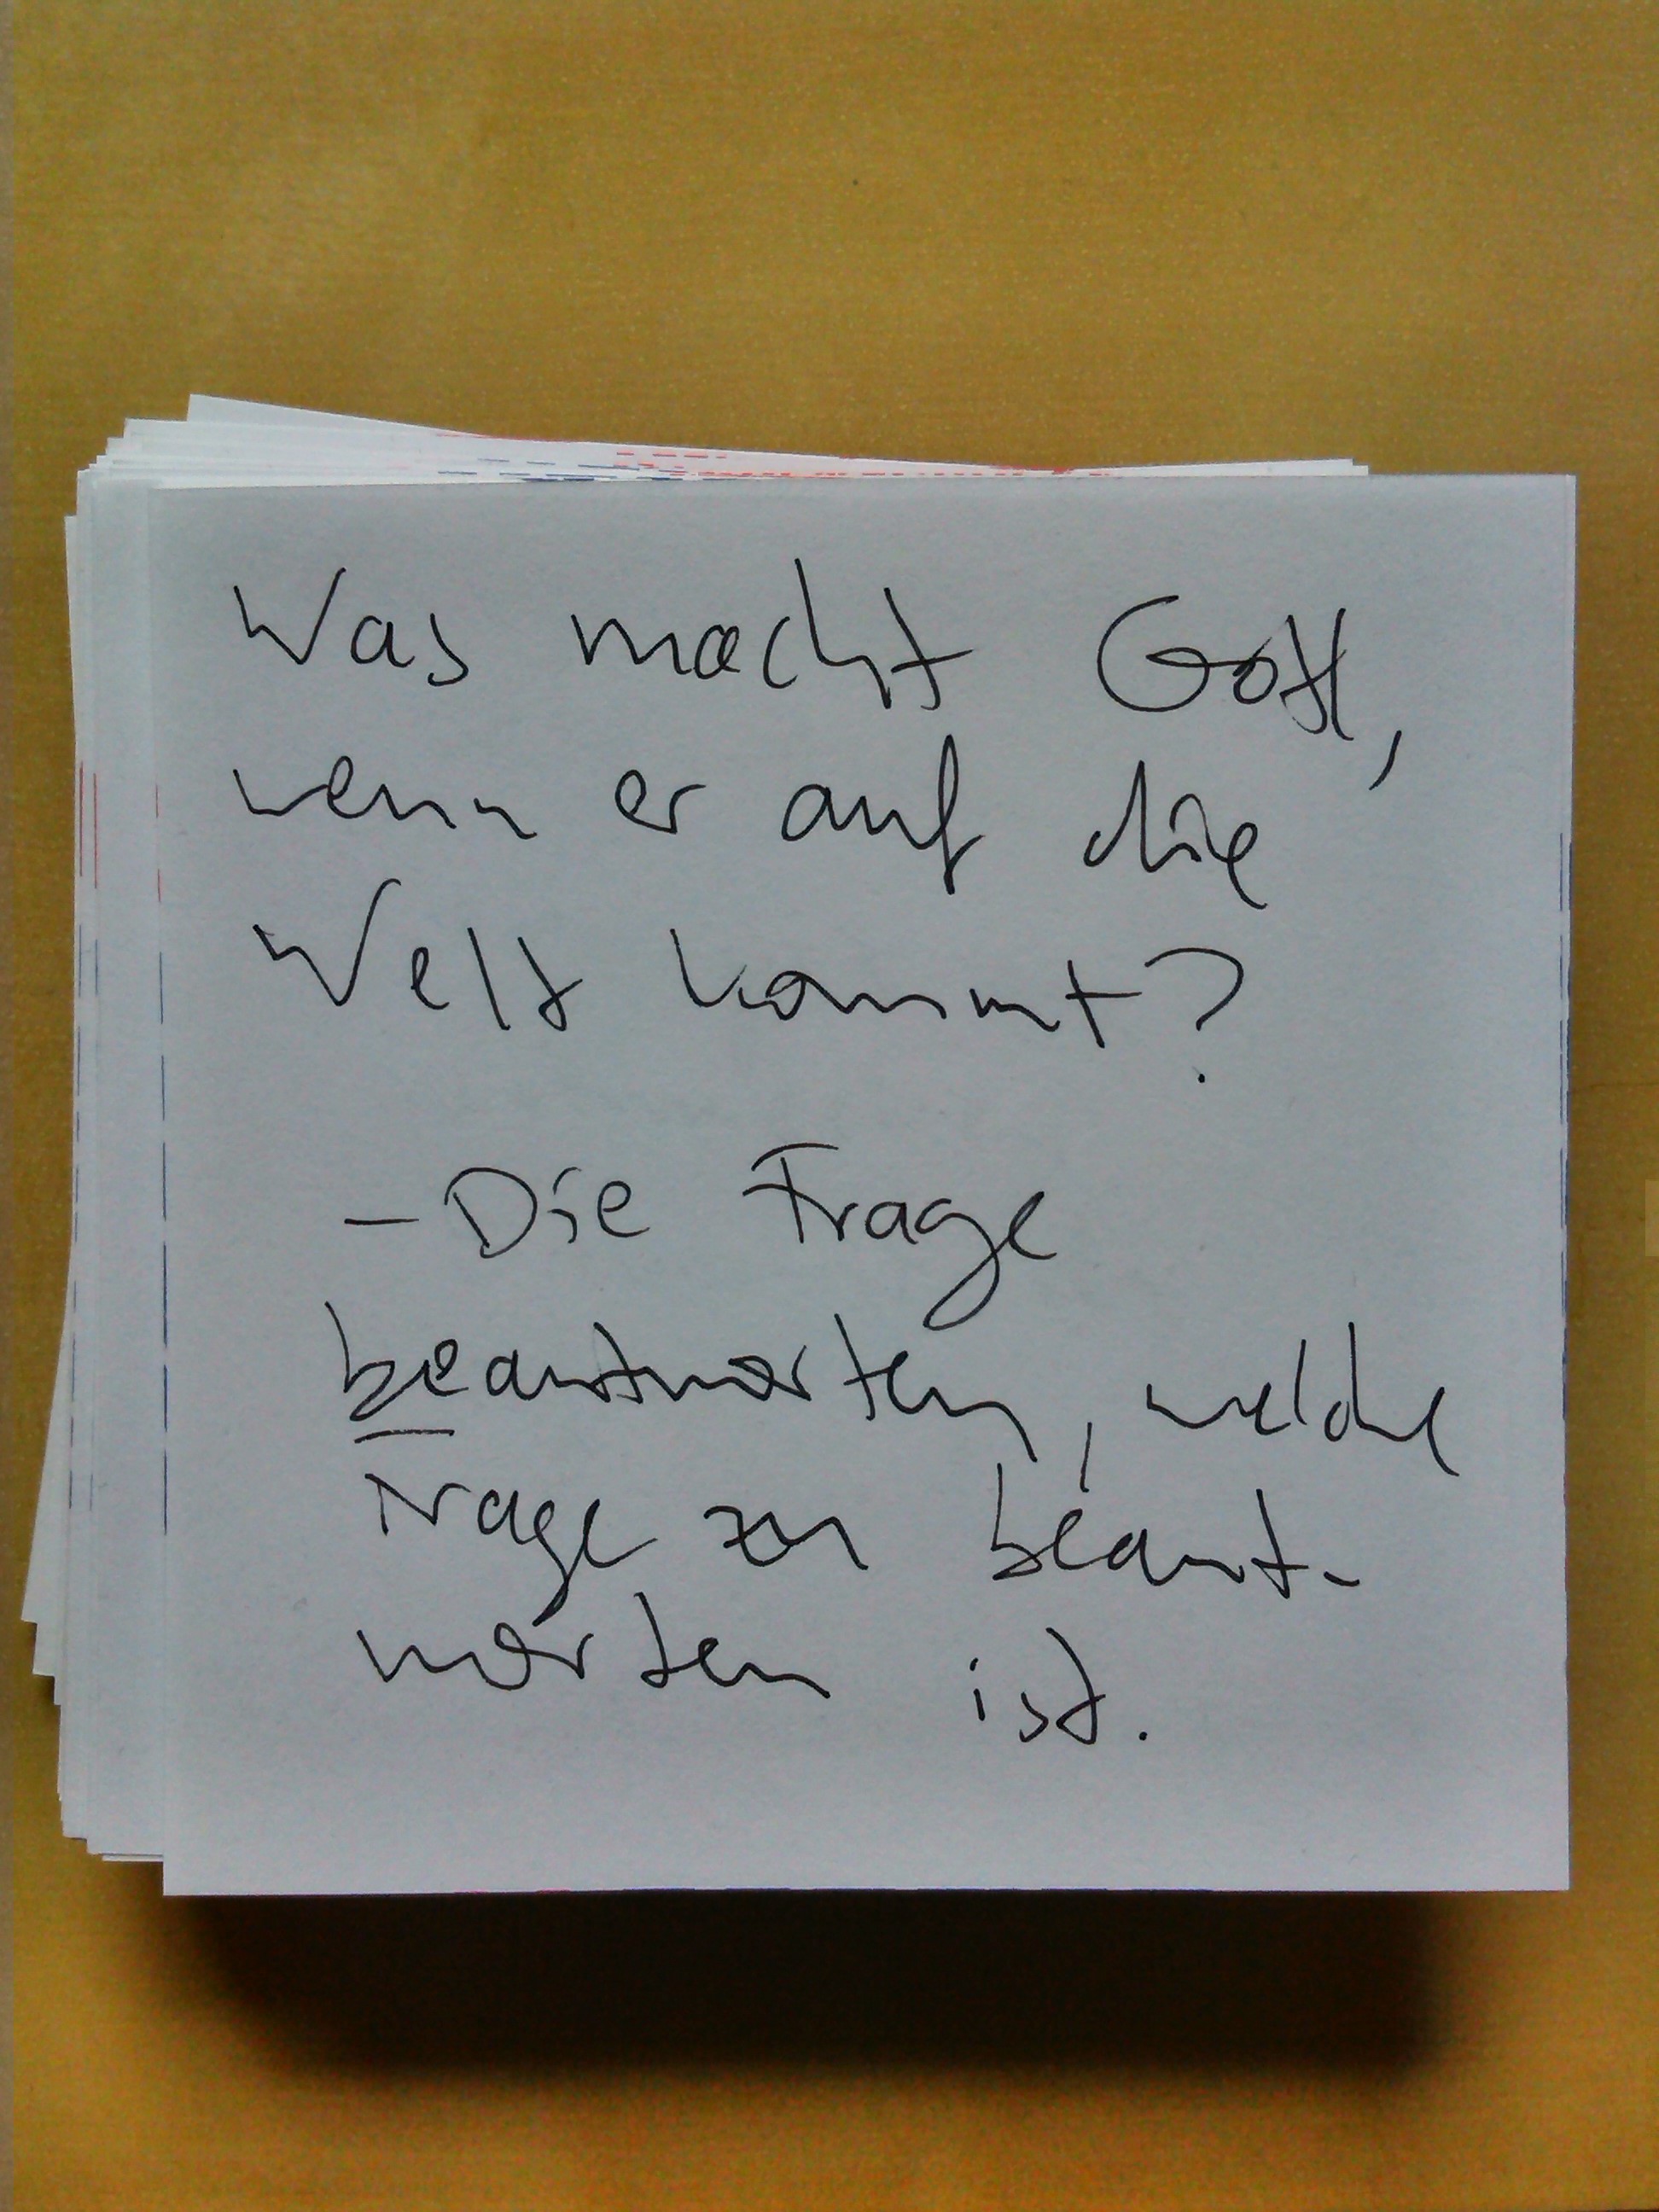 Was macht Gott,
wenn er auf die
Welt kommt?
– Die Frage
beantworten, welche
Frage zu beant-
worten ist.